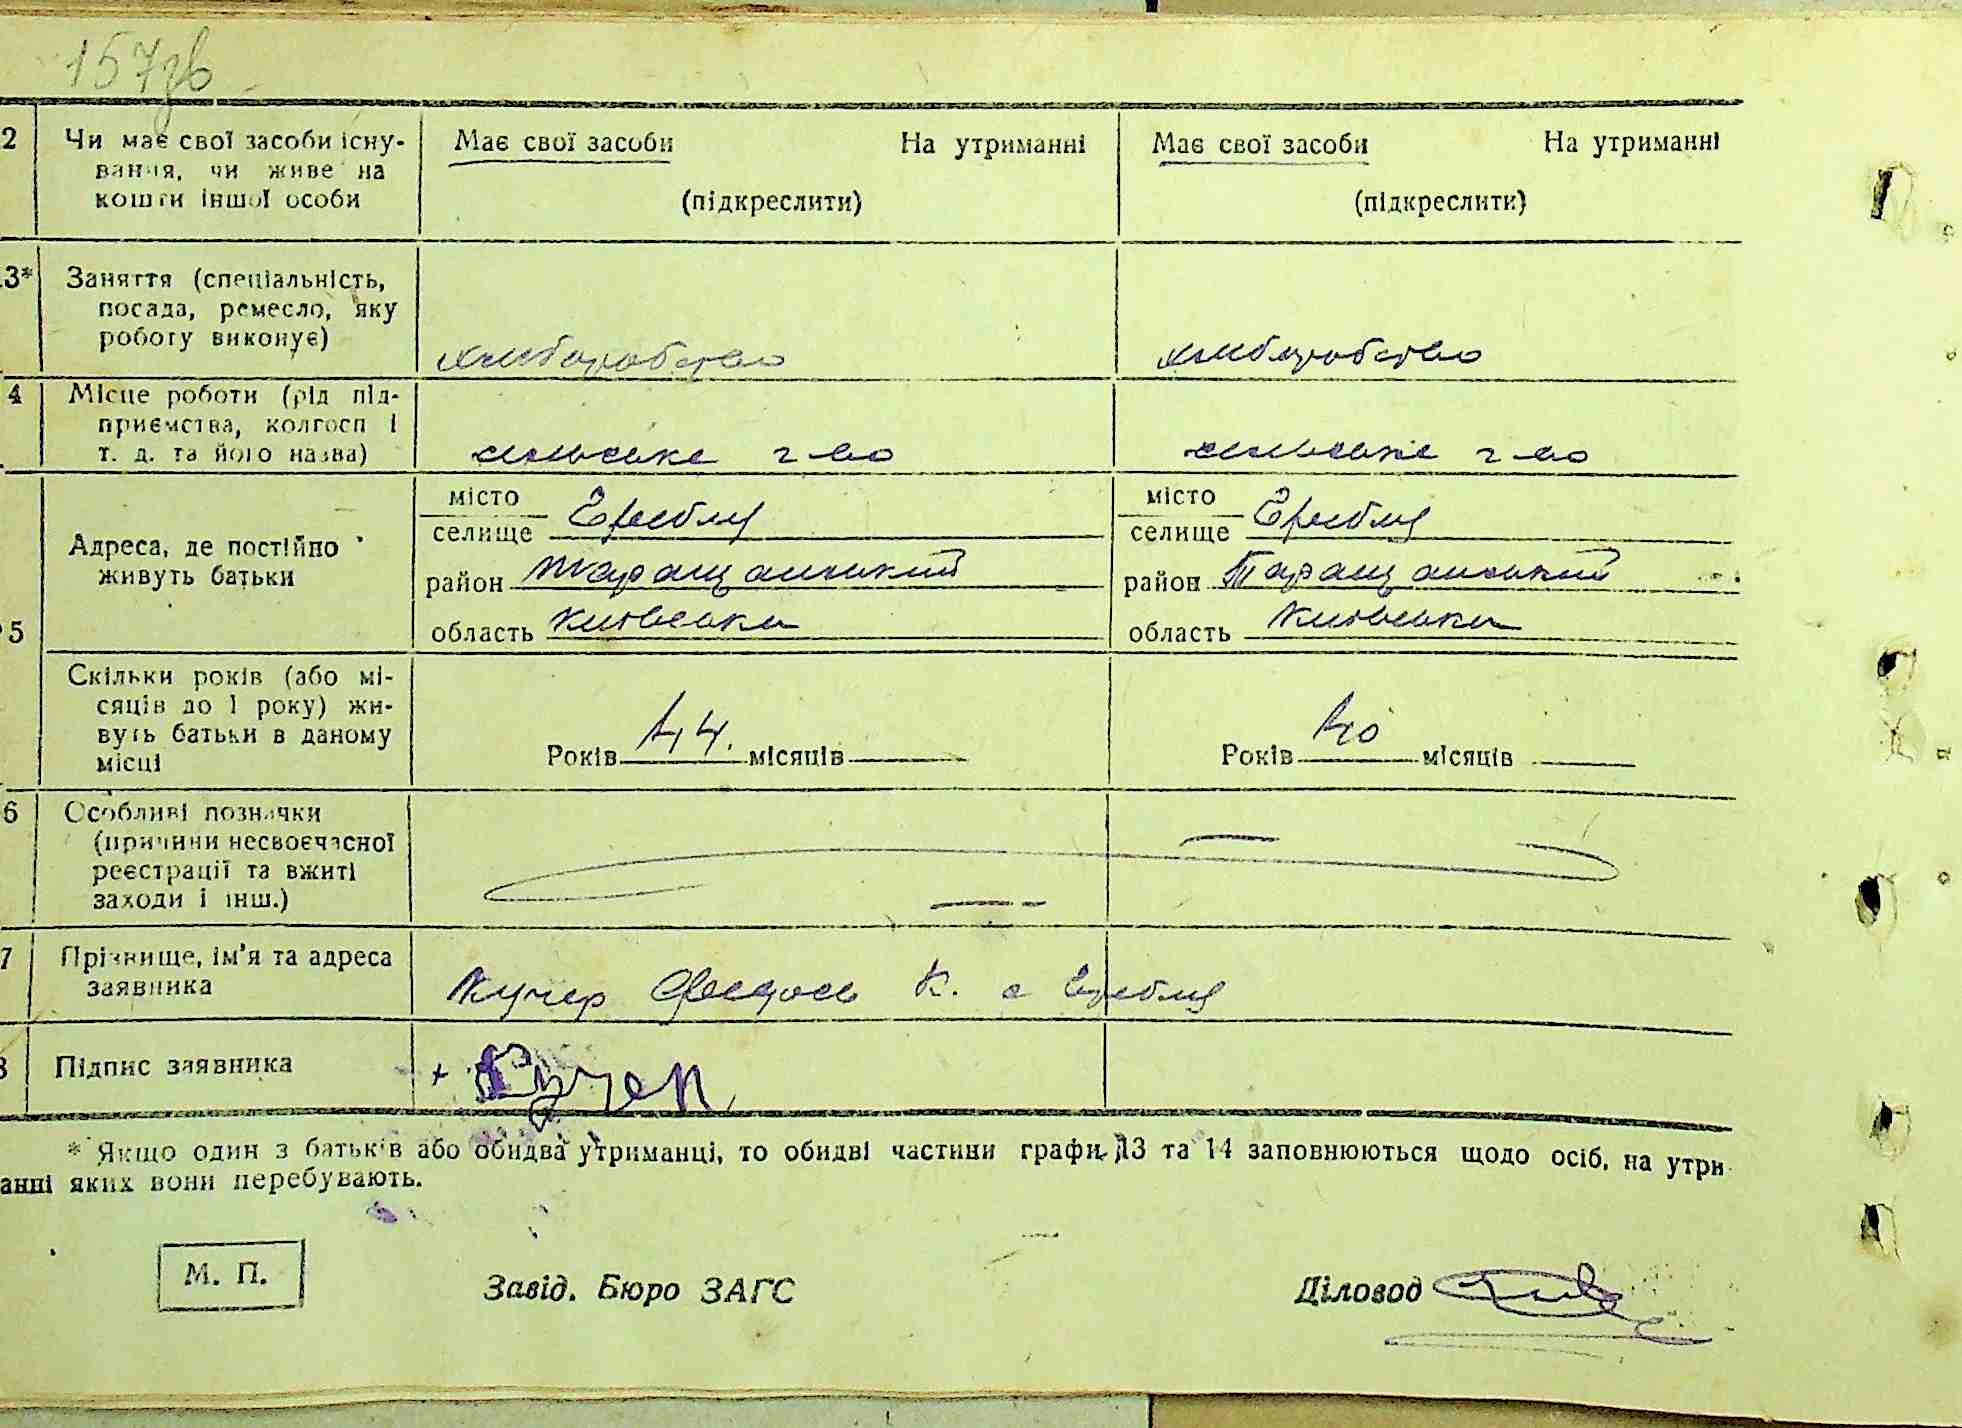 157зв
2 Чи має свої засоби існу- Має свої засоби На утриманні Має свої засоби На утриманні
вання, чи живе на
кошти іншої особи (підкреслити) (підкреслити)
3* Заняття (спеціальність,
посада, ремесло, яку
роботу виконує) хліборобство хліборобство
4 Місце роботи (рід під-
приємства, колгосп і
т. д. та його назва) сільське г-во сільське г-во
місто місто
селище селище
Адреса, де постійно
живуть батьки район Таращанський район Таращанський
5 область Київська область Київська
Скільки років (або мі-
сяців до 1 року) жи-
вуть батьки в даному Років 44. місяців Років 40 місяців
місці
6 Особливі позначки
(причини несвоєчасної
реєстрації та вжиті
заходи і інш.)
7 Прізвище, ім'я та адреса
заявника Кучер Федось К. с
8 Підпис заявника + Кучер
* Якщо один з батьків або обидва утриманці, то обидві частини графи 13 та 14 заповнюються щодо осіб, на утри
анні яких вони перебувають.
М. П. Завід. Бюро ЗАГС Діловод